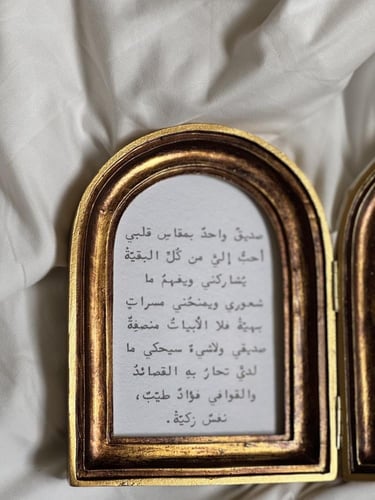 صديقٌ واحدٌ بمقاسِ قلبي
أحبُّ إليَّ من كُلِّ البقيّةْ
يُشاركني ويفهمُ ما
شعوري ويمنحُني مسراتٍ
بهيّةْ فلا الأبياتُ منصفِةٌ
صديقي ولاشيءٌ سيحكي ما
لديَّ تحارُ بهِ القصائدُ
والقوافي فؤادٌ طيّبٌ،
نفسٌ زكيّةْ.